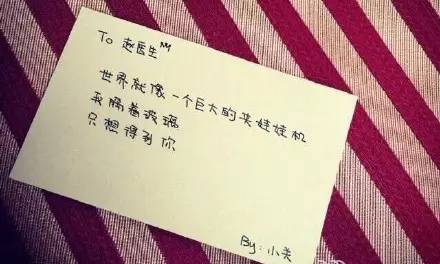 To 赵医生
世界就像一个巨大的夹娃娃机
我隔着玻璃
只想得到你
By: 小美